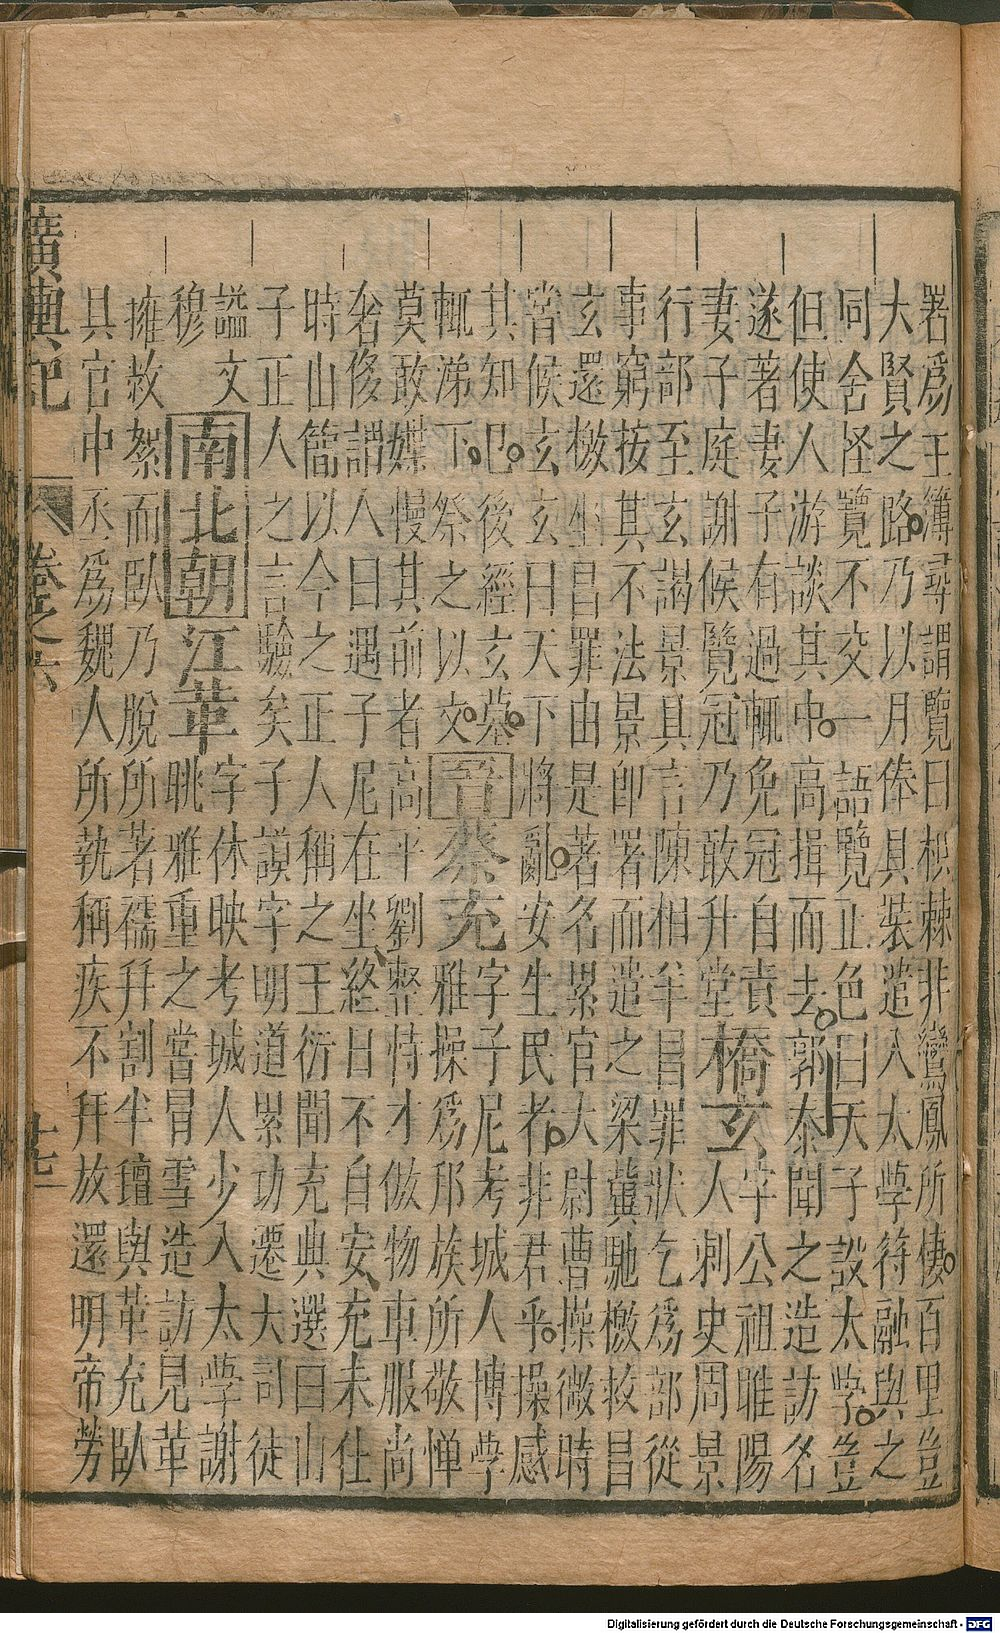 署為王簿尋謂覽曰枳棘非鸞鳳所棲百里豈
大賢之路乃以月俸具裝遣入太學符融與之
同舍怪覽不交一語覽正色曰天子設太學豈
但使人游談其中高揖而去郭泰聞之造訪名
遂著妻子有過輒免冠自責
妻子庭謝候覽冠乃敢升堂橋玄字公祖睢陽人刺史周景
行部至玄謁景具言陳相羊昌罪狀乞為部從
事窮按其不法景即署而遣之梁冀馳檄救昌
玄還檄坐昌罪由是著名累官大尉曹操微時
嘗候玄玄曰天下將亂安生民者非君乎操感
其知已後經玄墓
輒涕下祭之以文晉蔡充字子尼考城人博學雅操為邦族所敬憚
莫敢媟慢其前者高平劉整恃才倣物車服尚
奢侈謂人曰遇子尼在坐終日不自安充未仕
時山簡以今之正人稱之王衍聞充典選曰山
子正人之言驗矣子謨字明道累功遷大司徒
謚文
穆南北朝江革字休映考城人少入太學謝朓雅重之嘗冒雪造訪見革
擁敉絮而臥乃脫所著襦并割半氊與革充臥
具官中丞為魏人所執稱疾不拜放還明帝勞
廣輿記 卷之六 十七
Digitalisierung gefördert durch die Deutsche Forschungsgemeinschaft - DFG